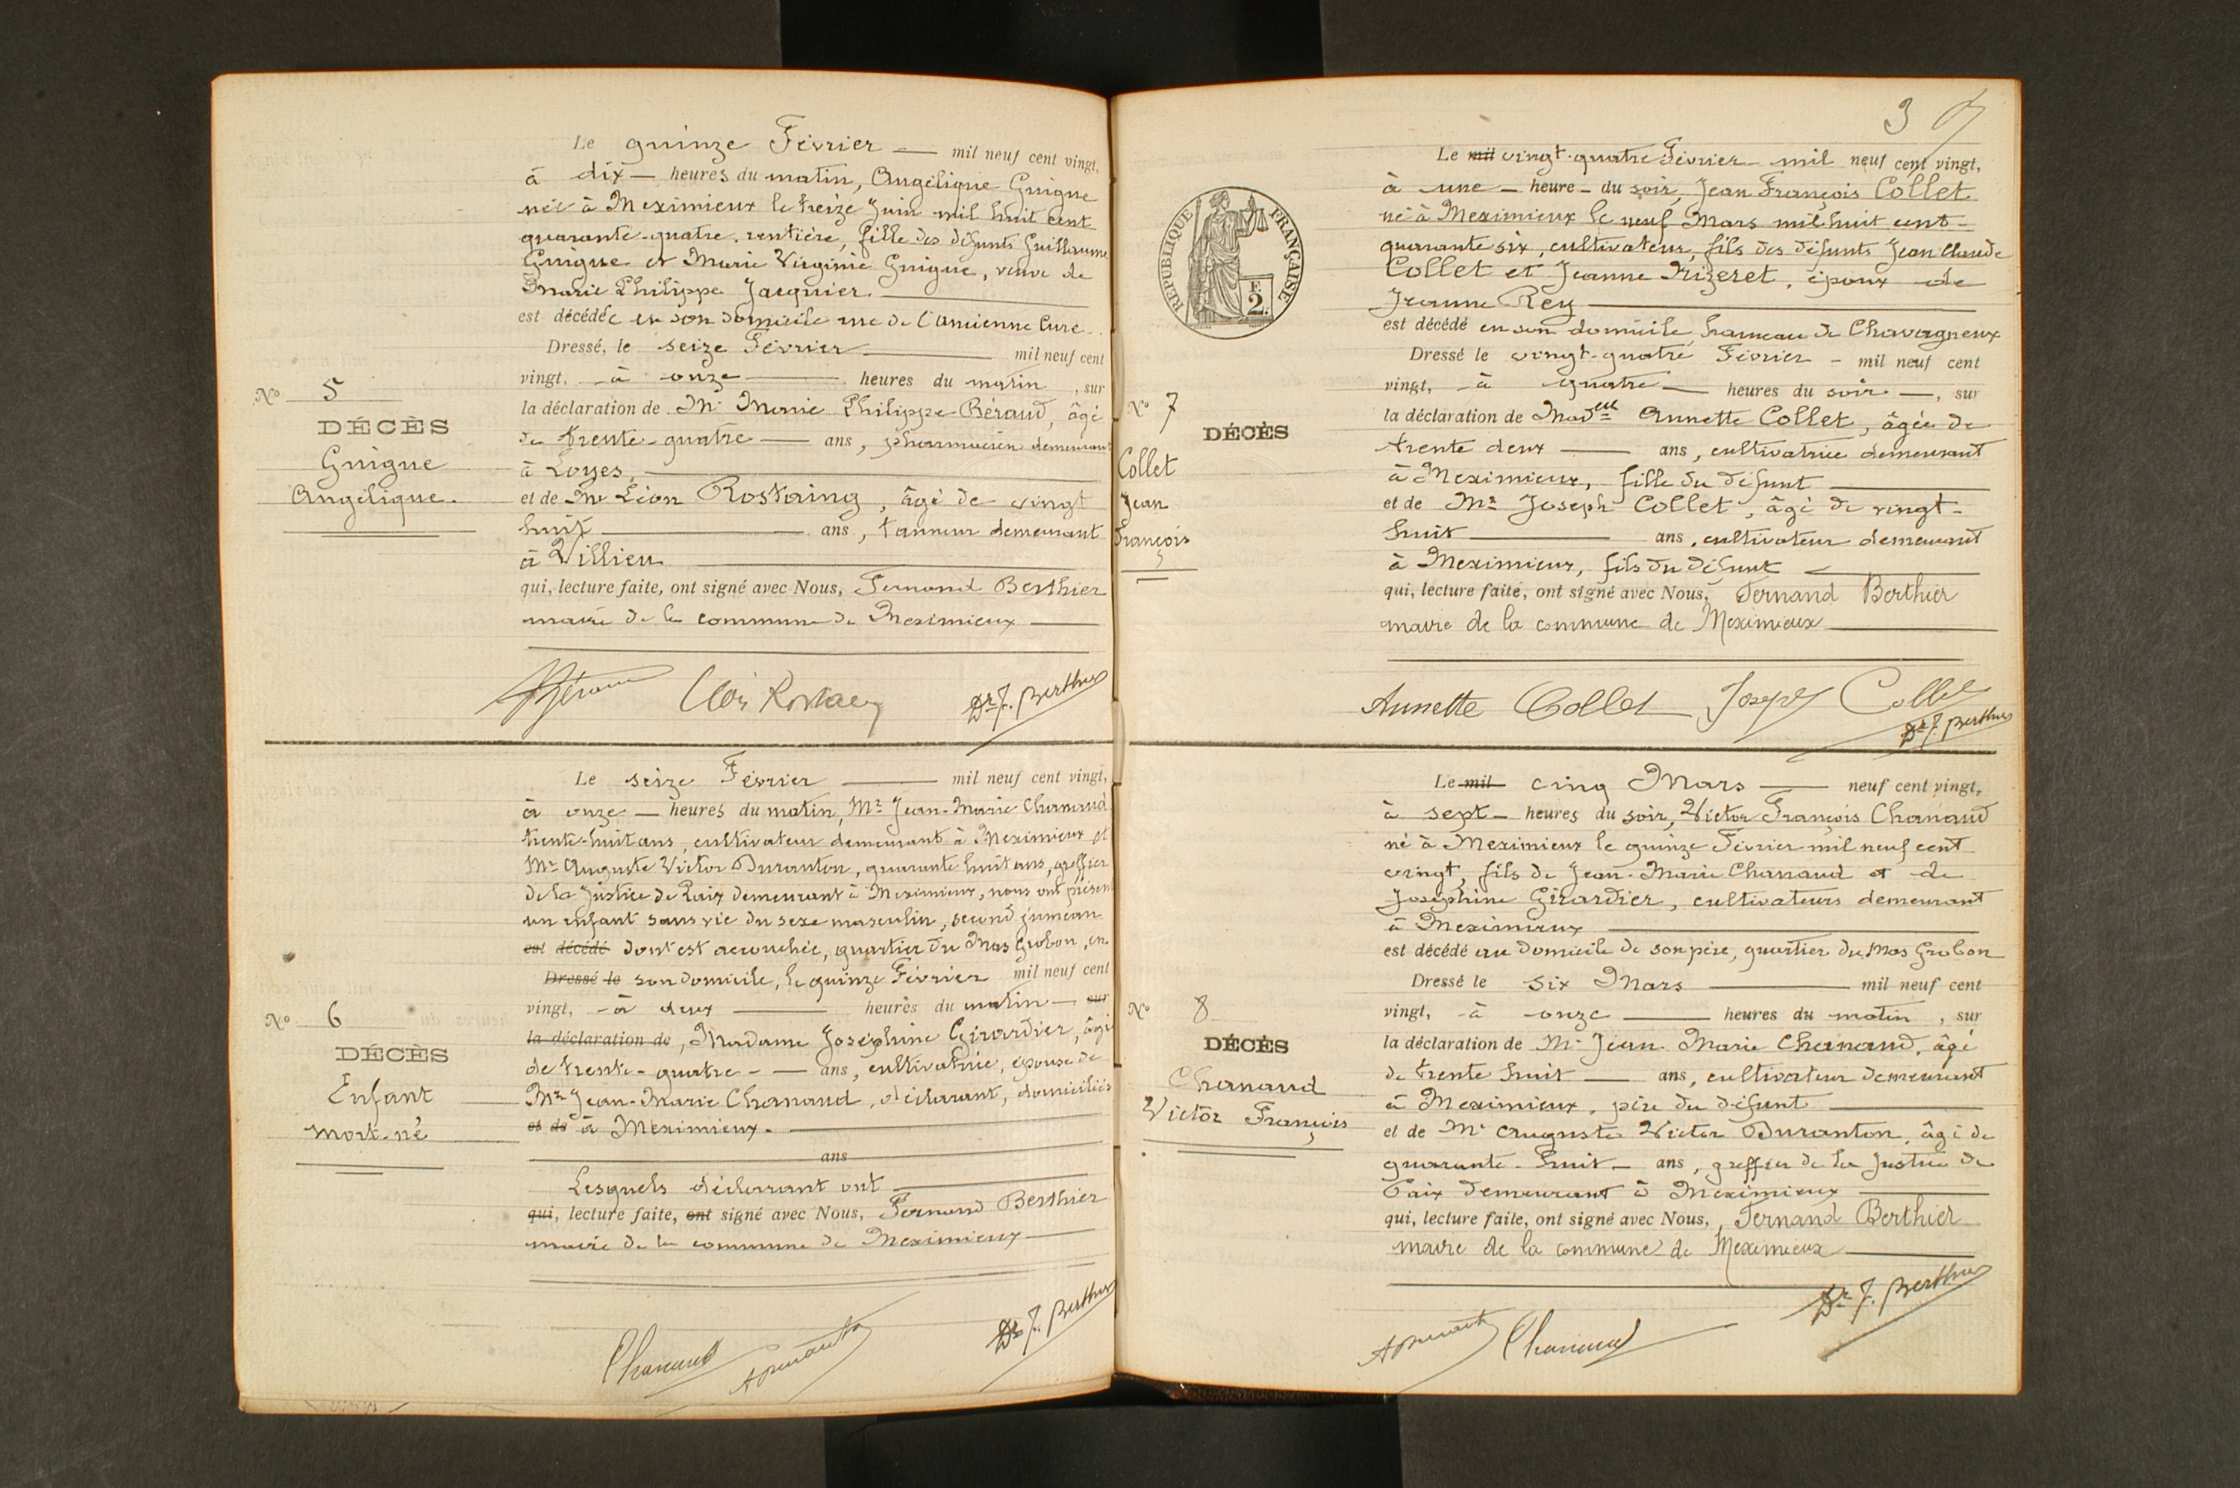 Le quinze Février — mil neuf cent vingt,
à dix — heures du matin, Angélique Guigue
née à Meximieux le treize Juin mil huit cent
quarante-quatre, rentière, fille des défunts Guillaume
Guigue et Marie Virginie Guigue, veuve de
Marie Philippe Jacquier.
est décédée en son domicile rue de l'Ancienne Cure.
Dressé, le seize Février — mil neuf cent
vingt, à onze — heures du matin, sur
la déclaration de Mr Marie Philippe Béraud, âgé
de trente-quatre — ans, pharmacien demeurant
à Loyes,
et de Mr Léon Rostaing, âgé de vingt
huit — ans, tanneur demeurant
à Villieu
qui, lecture faite, ont signé avec Nous, Fernand Berthier
maire de la commune de Meximieux —
Dr F. Berthier
No 5
DÉCÈS
Guigue
Angélique.
Le seize Février — mil neuf cent vingt,
à onze — heures du matin, Mr Jean-Marie Chanaud
trente-huit ans, cultivateur demeurant à Meximieux et
Mr Auguste Victor Duranton, quarante-huit ans, greffier
de la Justice de Paix demeurant à Meximieux, nous ont présen
un enfant sans vie du sexe masculin, second jumeau
est décédé dont est accouchée, quartier du Mas Grobon, en
Dressé le son domicile, le quinze Février mil neuf cent
vingt, à deux — heures du matin — sur
la déclaration de, Madame Joséphine Girardier, âgé
de trente-quatre — ans, cultivatrice, épouse de
Mr Jean-Marie Chanaud, déclarant, domiciliés
et de à Meximieux.
ans
Lesquels déclarant ont
qui, lecture faite, ont signé avec Nous, Fernand Berthier
maire de la commune de Meximieux —
Chanaud ADuranton Dr F. Berthier
No 6
DÉCÈS
Enfant
mort-né
3
RÉPUBLIQUE FRANÇAISE
2 F.
Le mil vingt-quatre Février — mil neuf cent vingt,
à une — heure — du soir, Jean François Collet
né à Meximieux le neuf Mars mil huit cent-
quarante six, cultivateur, fils des défunts Jean Claude
Collet et Jeanne Frizeret, époux de
Jeanne Rey
est décédé en son domicile, hameau de Chavagneux
Dressé le vingt-quatre Février — mil neuf cent
vingt, à quatre — heures du soir —, sur
la déclaration de Madelle Annette Collet, âgée de
trente deux — ans, cultivatrice demeurant
à Meximieux, fille du défunt
et de Mr Joseph Collet, âgé de vingt-
huit — ans, cultivateur demeurant
à Meximieux, fils du défunt
qui, lecture faite, ont signé avec Nous, Fernand Berthier
maire de la commune de Meximieux
Annette Collet Joseph Collet
Dr F. Berthier
No 7
DÉCÈS
Collet
Jean
François
Le mil cinq Mars — neuf cent vingt,
à sept — heures du soir, Victor François Chanaud
né à Meximieux le quinze Février mil neuf cent
vingt, fils de Jean-Marie Chanaud et de
Joséphine Girardier, cultivateurs demeurant
à Meximieux
est décédé au domicile de son père, quartier du Mas Grobon
Dressé le six Mars — mil neuf cent
vingt, à onze — heures du matin, sur
la déclaration de Mr Jean Marie Chanaud, âgé
de trente huit — ans, cultivateur demeurant
à Meximieux, père du défunt
et de Mr Auguste Victor Duranton, âgé de
quarante-huit — ans, greffier de la Justice de
Paix demeurant à Meximieux
qui, lecture faite, ont signé avec Nous, Fernand Berthier
maire de la commune de Meximieux
ADuranton Chanaud Dr F. Berthier
No 8
DÉCÈS
Chanaud
Victor François